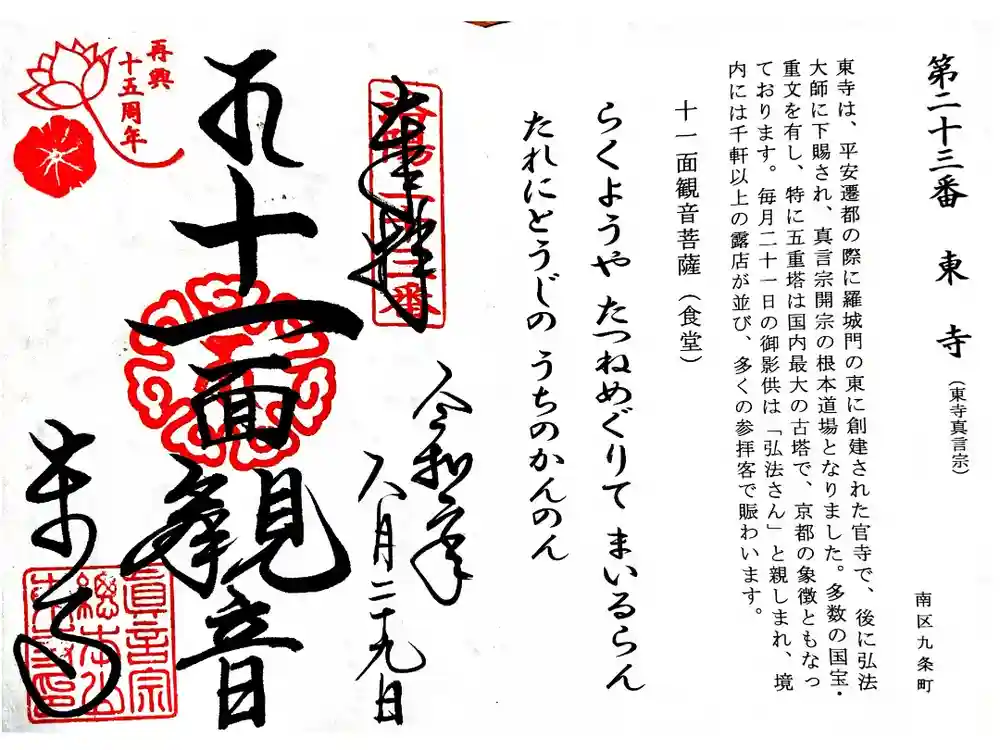 第二十三番 東寺(東寺真言宗)
南区九条町
東寺は、平安遷都の際に羅城門の東に創建された官寺で、後に弘法
大師に下賜され、真言宗開宗の根本道場となりました。多数の国宝・
重文を有し、特に五重塔は国内最大の古塔で、京都の象徴ともなっ
ております。毎月二十一日の御影供は「弘法さん」と親しまれ、境
内には千軒以上の露店が並び、多くの参拝客で賑わいます。
十一面観音菩薩(食堂)
らくようや たつねめぐりて まいるらん
たれにとうじの うちのかんのん
奉拝
洛陽二十三番
令和六年
八月二十九日
十一面觀音
東寺
真言宗
總本山
再興
十五周年